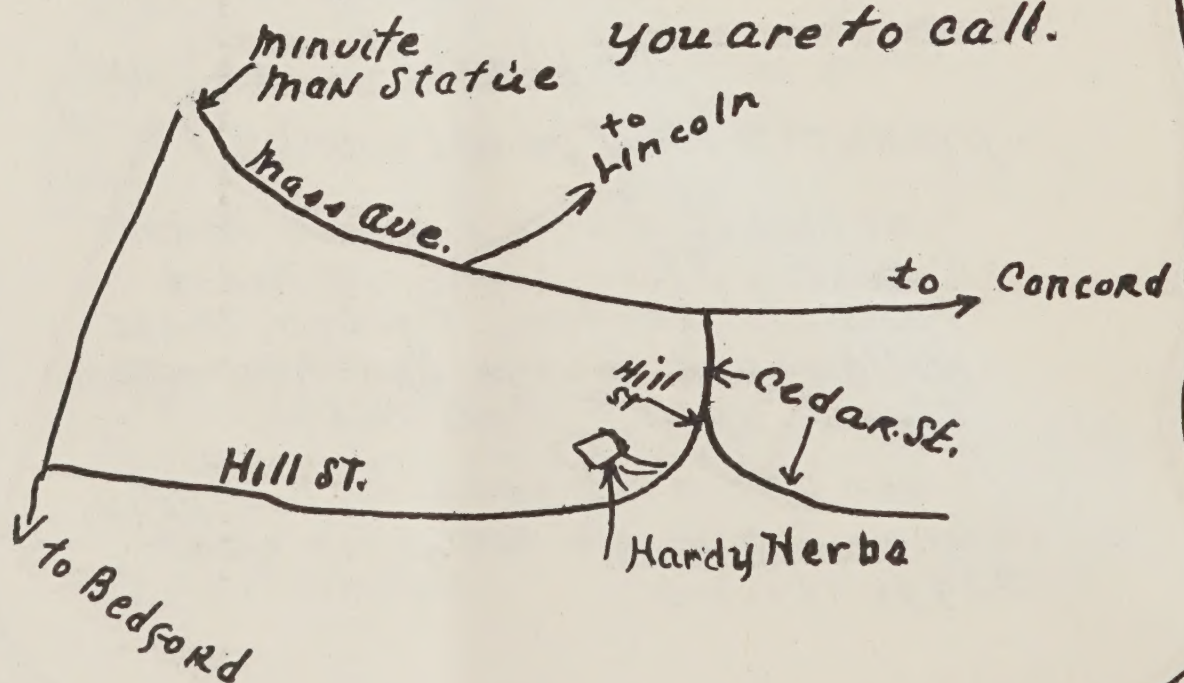 you are to call.
minuite
man Statue
to
Lincoln
Mass Ave.
to Concord
Hill
ST
Cedar. St.
Hill ST.
Hardy Herbs
to Bedford